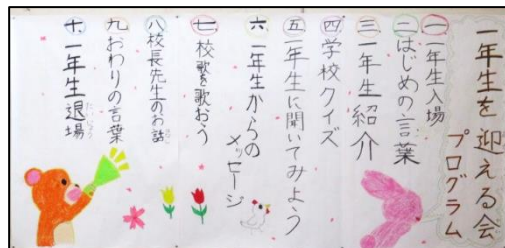 一年生を迎える会
プログラム
一 一年生入場
二 はじめの言葉
三 一年生紹介
四 学校クイズ
五 一年生に聞いてみよう
六 一年生からの
メッセージ
七 校歌を歌おう
八 校長先生のお話
九 おわりの言葉
十 一年生退場